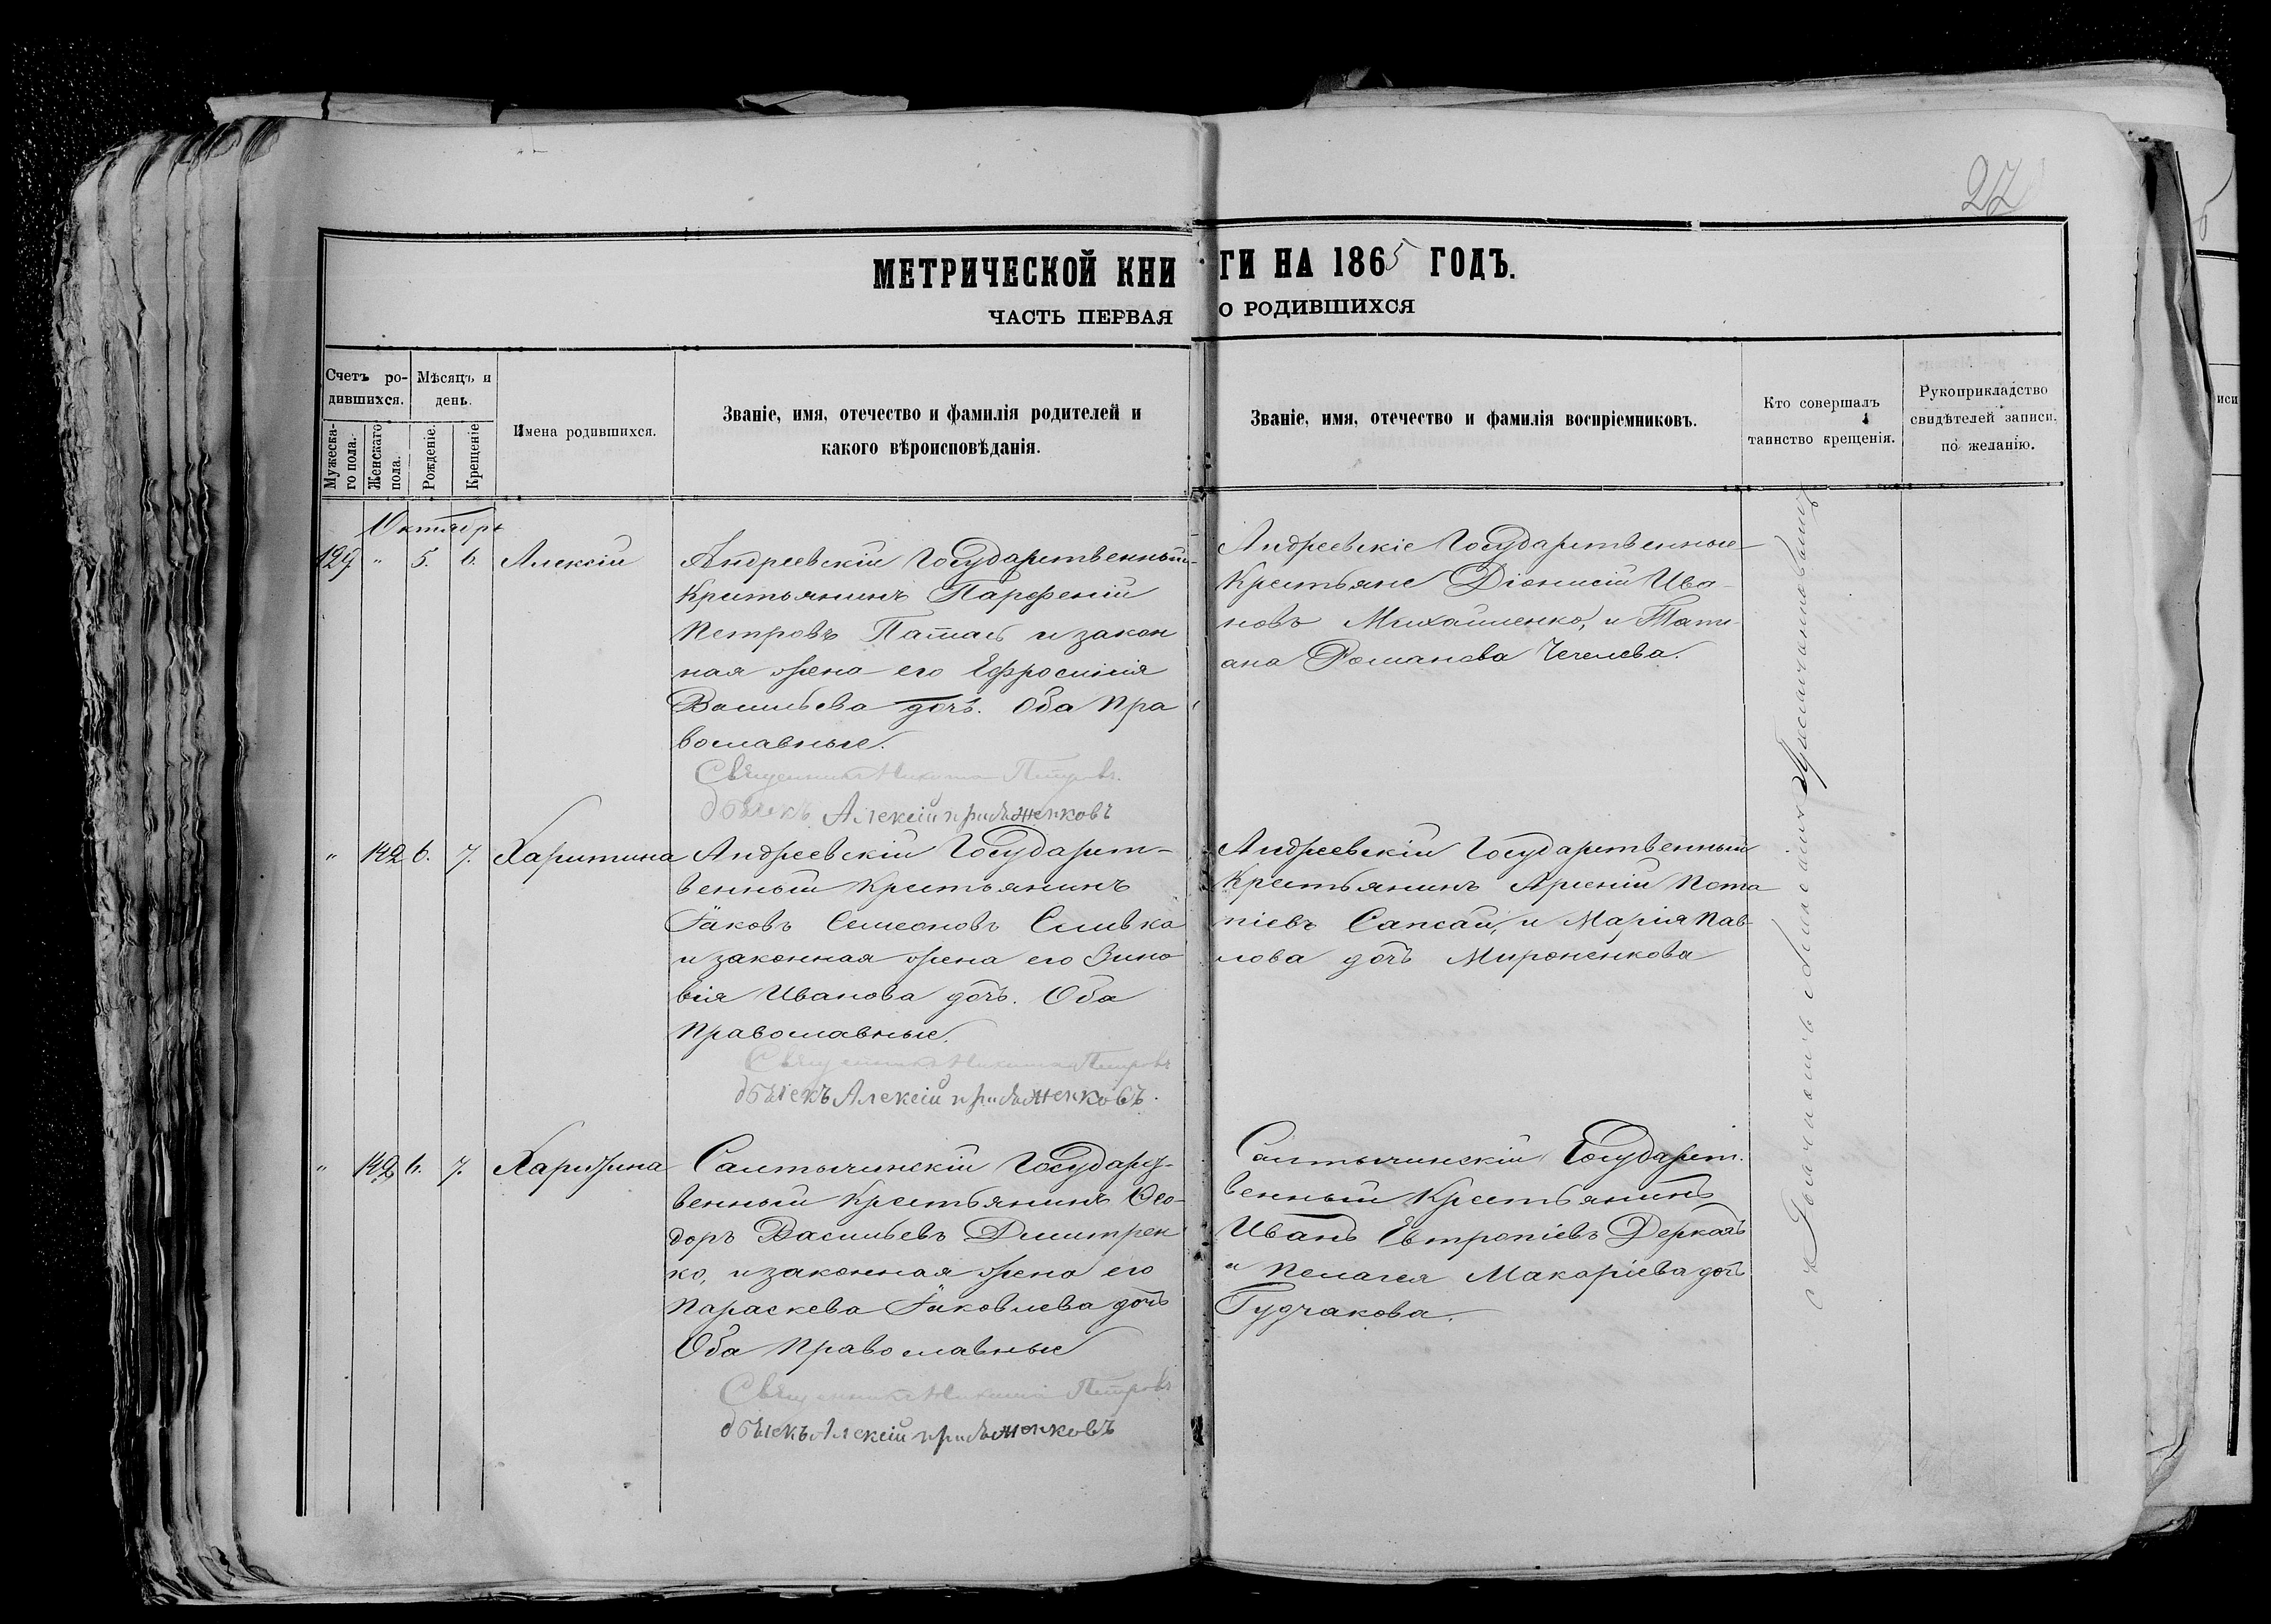 27
МЕТРИЧЕСКОЙ КНИГИ НА 1865 ГОДЪ.
ЧАСТЬ ПЕРВАЯ О РОДИВШИХСЯ
Счетъ ро-
дившихся.
Мужеска-
го пола.
Женскаго
пола.
Мѣсяцъ и
день.
Рожденіе.
Крещеніе
Имена родившихся.
Званіе, имя, отечество и фамилія родителей и
какого вѣроисповѣданія.
Званіе, имя, отечество и фамилія воспріемниковъ.
Кто совершалъ
таинство крещенія.
Рукоприкладство
свидѣтелей записи.
по желанію.
Октябрь
129 " 5. 6. Алексій
Андреевскій Государственный
Крестьянинъ Парфеній
Петровъ и закон
ная жена его Ефросинія
Васильева дочь. Оба Пра
вославные.
Священникъ Никита Петровъ.
дьячекъ Алексій
Андреевскіе Государственные
Крестьяне Діонисій Ива-
новъ Михайленко, и Тати
ана Романова Чечелева.
" 142 6. 7. Харитина
Андреевскій Государст-
венный Крестьянинъ
Іаковъ Симеоновъ Сливка
и законная жена его Зино
вія Иванова дочь. Оба
Православные.
Священникъ Никита Петровъ
дьячекъ Алексій
Андреевскій Государственный
Крестьянинъ Арсеній Пота
піевъ Сапсай, и Марія Пав-
лова дочь Мироненкова
" 6. 7. Харитина
Салтычинскій Государст-
венный Крестьянинъ Ѳео-
доръ Васильевъ Дмитрен
ко, и законная жена его
Параскева Іаковлева дочь
Оба Православные
Священникъ Никита Петровъ
дьячекъ Алексій
Салтычинскій Государст.
венный Крестьянинъ
Иванъ Евтропіевъ Деркачь
и Пелагея Макаріева дочь
Гудчакова.